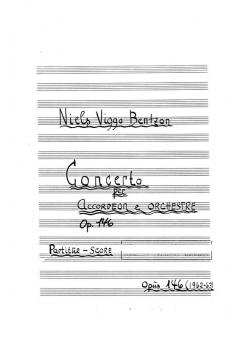 Niels Viggo Bentzon
Concerto
per
ACCORDEON e ORCHESTRE
Op. 146
Partitur - SCORE
Opus 146 (1962-63)